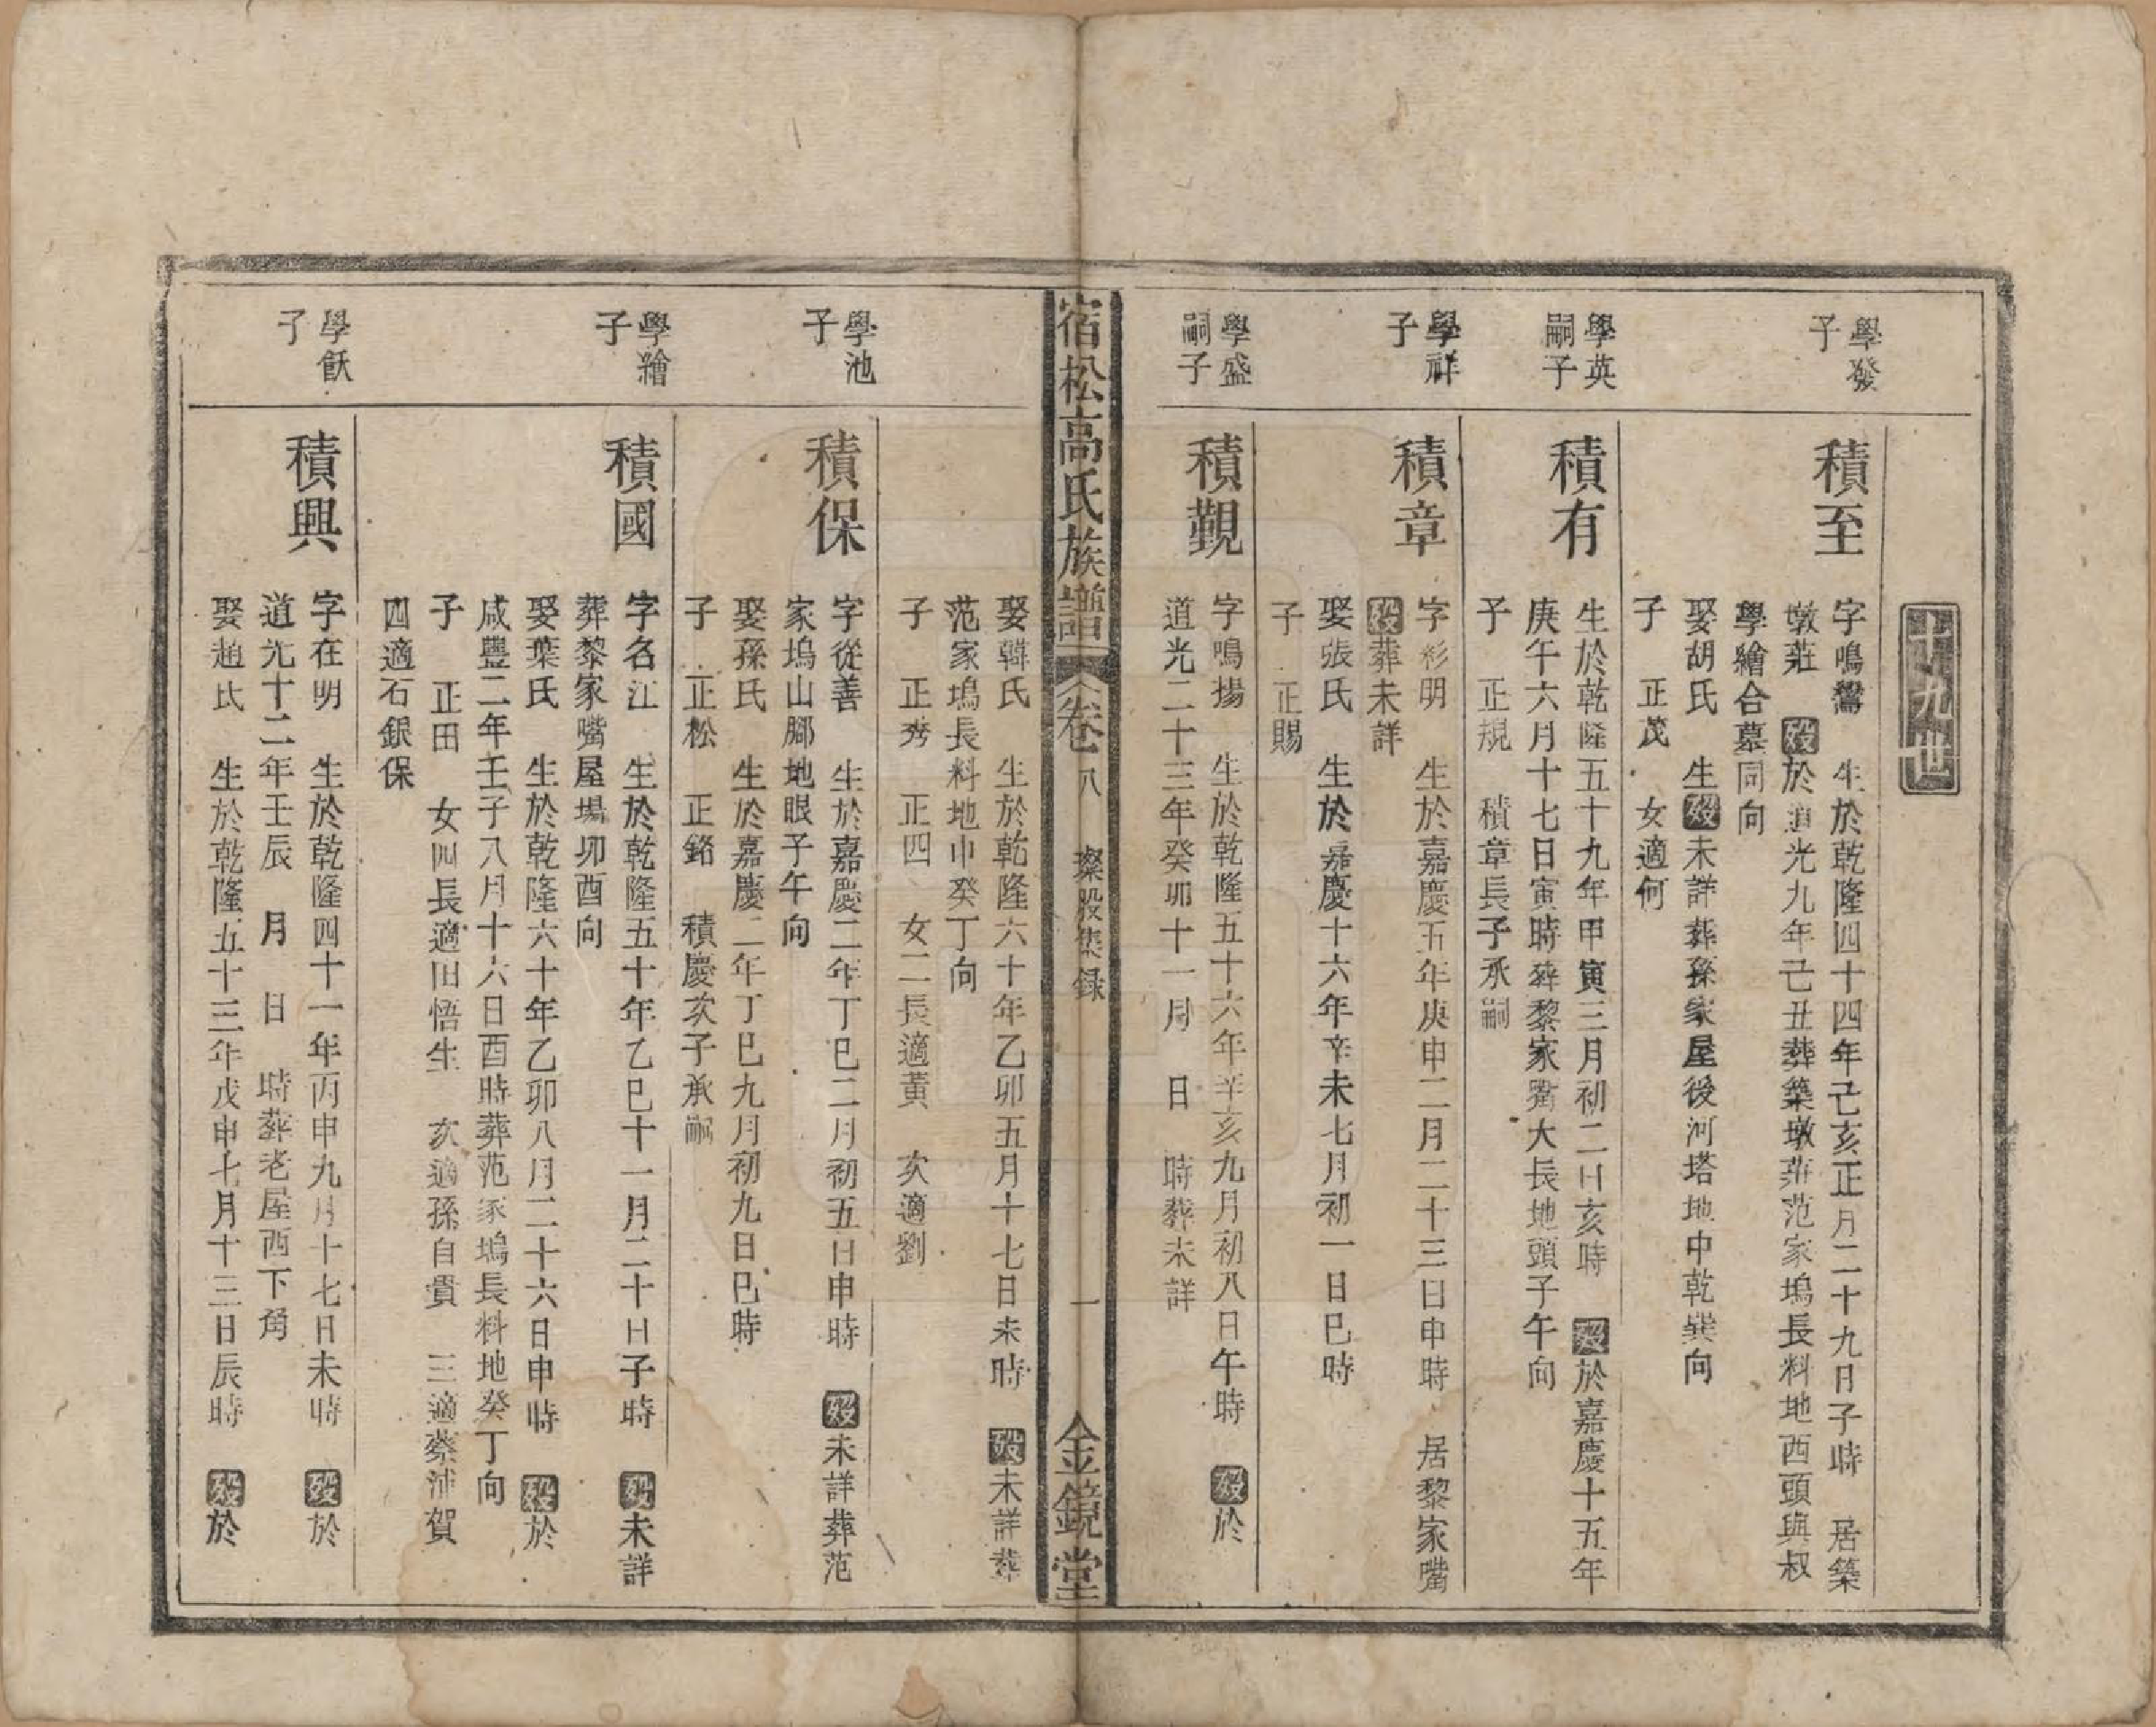 十九世
學發
子
積至
字鳴鸞 生於乾隆四十四年己亥正月二十九日子時 居築
墩莊 殁於道光九年己丑葬築墩莊范家塢長料地酉頭與叔
學繪合墓同向
娶胡氏 生殁未詳葬孫家屋後河塔地中乾巽向
子 正茂 女適何
學英
嗣子
積有
生於乾隆五十九年甲寅三月初二日亥時 殁於嘉慶十五年
庚午六月十七日寅時葬黎家嘴大長地頭子午向
子 正規 積章長子承嗣
學祥
子
積章
字彩明 生於嘉慶五年庚申二月二十三日申時 居黎家嘴
殁葬未詳
娶張氏 生於嘉慶十六年辛未七月初一日巳時
子 正賜
學盛
嗣子
積觀
字鳴揚 生於乾隆五十六年辛亥九月初八日午時 殁於
道光二十三年癸卯十一月 日 時葬未詳
宿松高氏族譜 卷八 璨股集録 一 金鏡堂
娶韓氏 生於乾隆六十年乙卯五月十七日未時 殁未詳葬
范家塢長料地中癸丁向
子 正秀 正四 女二長適黃 次適劉
學池
子
積保
字從善 生於嘉慶二年丁巳二月初五日申時 殁未詳葬范
家塢山腳地眼子午向
娶孫氏 生於嘉慶二年丁巳九月初九日巳時
子 正松 正銘 積慶次子承嗣
學繪
子
積國
字名江 生於乾隆五十年乙巳十一月二十日子時 殁未詳
葬黎家嘴屋場卯酉向
娶葉氏 生於乾隆六十年乙卯八月二十六日申時 殁於
咸豐二年壬子八月十六日酉時葬范家塢長料地癸丁向
子 正田 女四長適田悟生 次適孫自貴 三適蔡沛賀
四適石銀保
學飫
子
積興
字在明 生於乾隆四十一年丙申九月十七日未時 殁於
道光十二年壬辰 月 日 時葬老屋西下角
娶趙氏 生於乾隆五十三年戊申七月十三日辰時 殁於